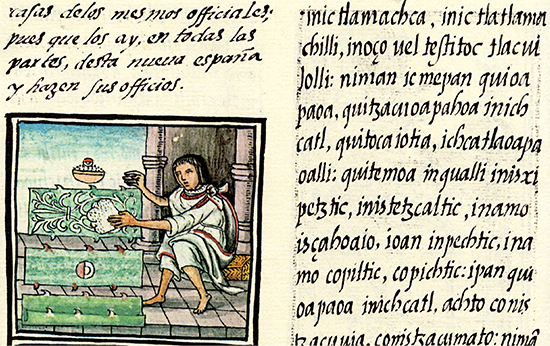 casas delos mesmos officiales,
pues que los ay, en todas las
partes, desta nueva españa
y hazen sus officios.
inic tlamachca, inic tlatlama
chilli, inoço uel testitoc tlacui
lolli: niman ic mepan quioa
paoa, quitzacuoapahoa inich
catl, quitocaiotia, ichcatlaoapa
oalli: quitemoa inqualli inisxi
petztic, inistetzcaltic, inamo
isçahoaio, ioan inpechtic, ina
mo copiltic, copichtic: ipan qui
oapaoa inichcatl, achto conis
tzacuuia, conistzacumato: nimã